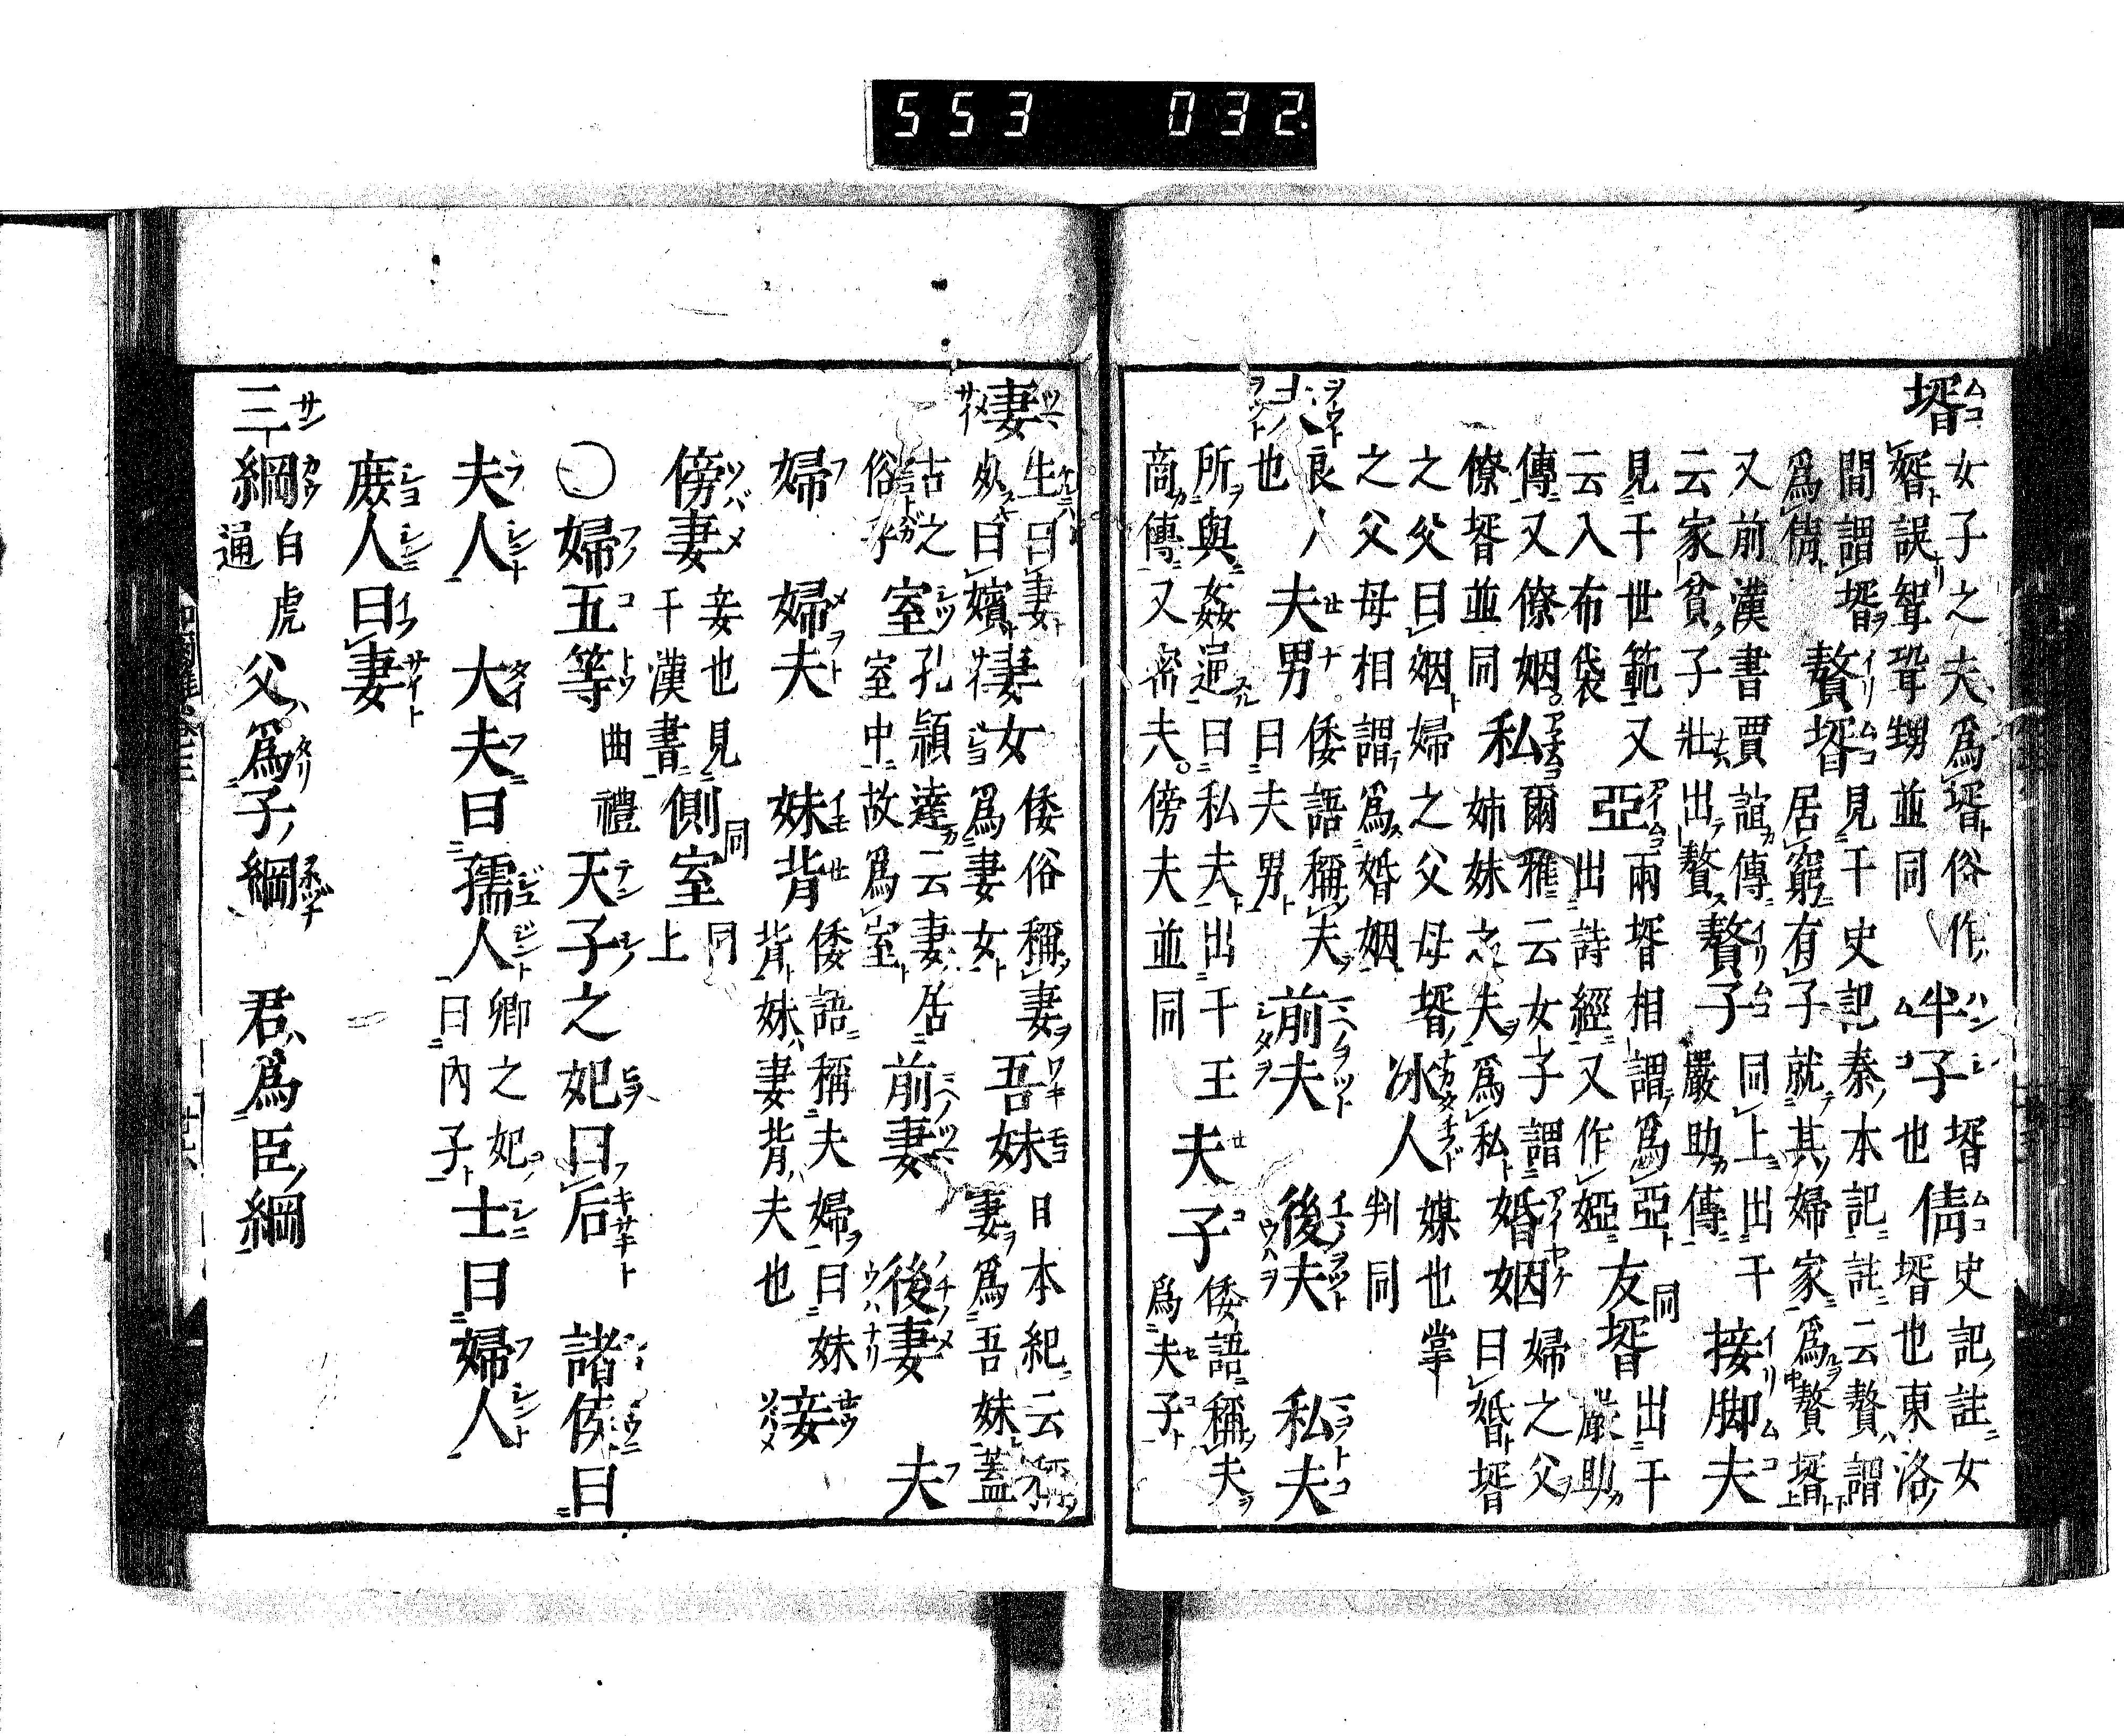 553 032.
壻 女子之夫爲壻俗作
婿誤聟聓甥並同 半子 壻也 倩 史記註女
壻也東洛
間謂壻 贅壻 見于史記秦本記註云贅謂
爲倩 居窮有子就其婦家爲贅壻
又前漢書賈誼傳 贅子 同上出于 接脚夫
云家貧子壯出贅 嚴助傳
見于世範又 亞 兩壻相謂爲亞 友壻 同 出于
云入布袋 出詩經又作婭 嚴助
傳又僚姻 私 爾雅云女子謂 婚姻 婦之父
僚壻並同 姉妹之夫爲私 曰婚壻
之父曰姻婦之父母壻 冰人 媒也掌
之父母相謂爲婚姻 判同
夫 良人 夫男 倭語稱夫 前夫 後夫 私夫
也 曰夫男
所與姦逼曰私夫出于王 夫子 倭語稱夫
商傳又密夫傍夫並同 爲夫子
妻 生曰妻 妻女 倭俗稱妻 吾妹 日本紀云
死曰嬪 爲妻女 妻爲吾妹蓋
古之 室 孔穎達云妻居 前妻 後妻 夫
俗言子 室中故爲室
婦 婦夫 妹背 倭語稱夫婦曰妹 妾
背妹妻背夫也
傍妻 妾也見 側室 同
于漢書 同上
○婦五等 曲禮 天子之妃曰后 諸侯曰
夫人 大夫曰孺人 卿之妃 士曰婦人
曰內子
庶人曰妻
三綱 白虎 父爲子綱 君爲臣綱
通